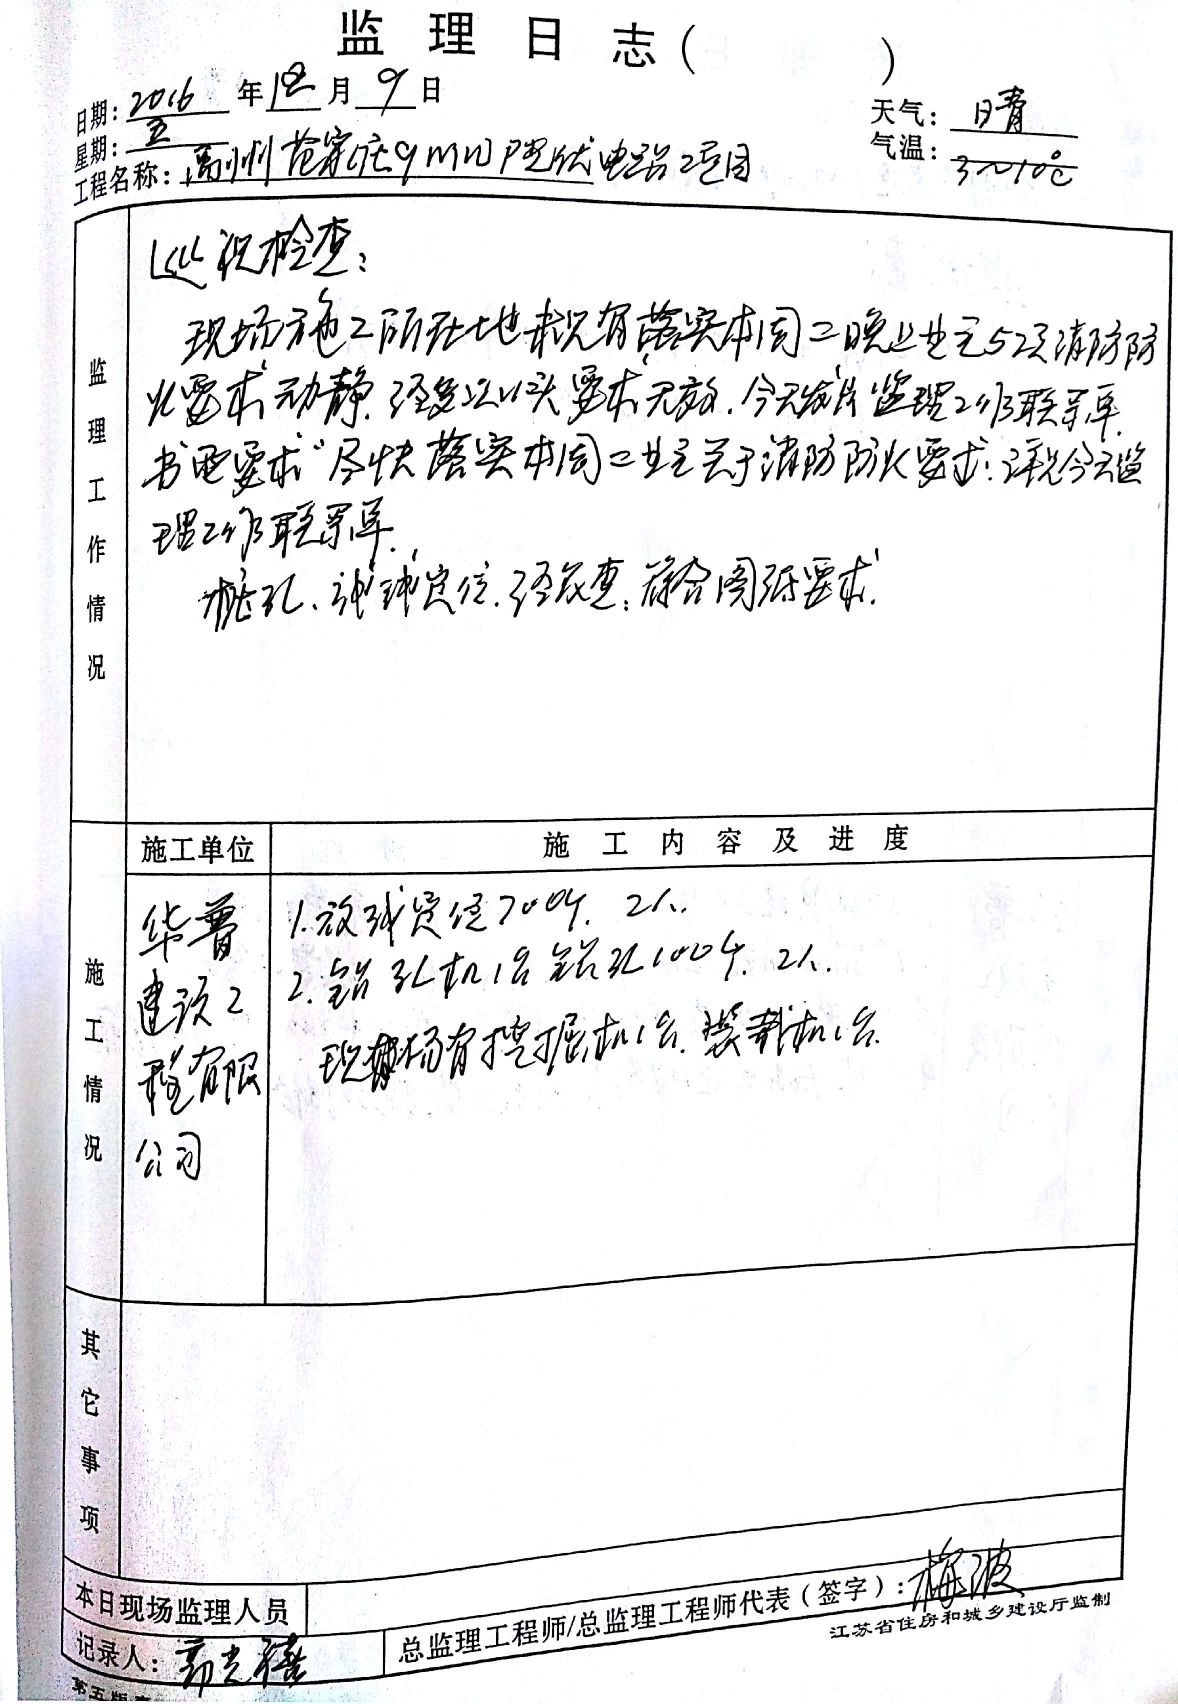 监 理 日 志 (          )
日期: 2016 年 12 月 9 日
天气: 晴
星期: 五
气温: 3~10℃
工程名称: 禹州范家庄9MW光伏电站项目
监理工作情况
巡视检查:
现场施工所在地未见有落实本周二晚上业主5项消防防
火要求动静,经多次口头要求无效,今天发片监理工作联系单
书面要求"尽快落实本周二业主关于消防防火要求:详见今天监
理工作联系单.
桩孔、放线定位,经复查:符合图纸要求.
施工单位
施 工 内 容 及 进 度
施工情况
华普
建设工
程有限
公司
1.放线定位700个, 2人.
2.钻孔机1台钻孔100个, 2人.
现场有挖掘机1台、装载机1台.
其它事项
本日现场监理人员
总监理工程师/总监理工程师代表(签字): 梅波
记录人:
江苏省住房和城乡建设厅监制
第五版